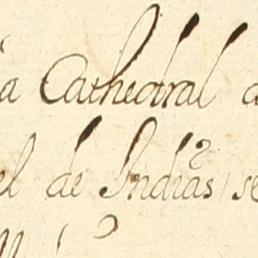 a Cathedral
el de Indias se